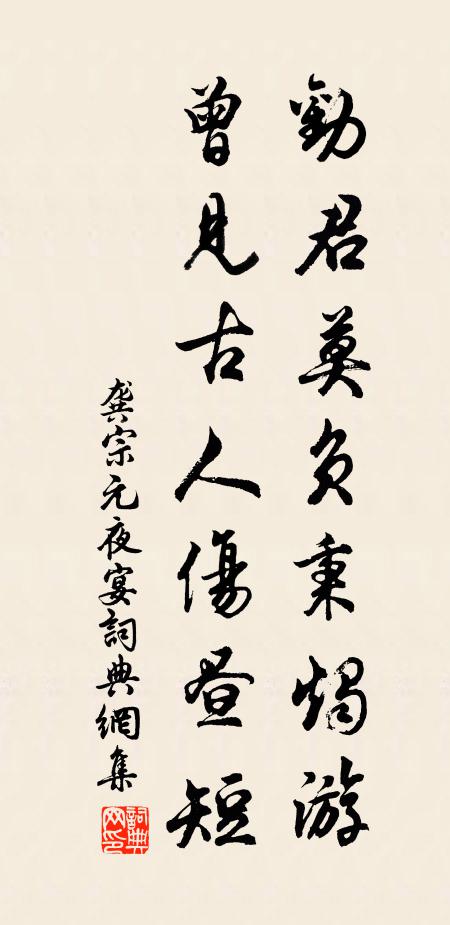 勸君莫負秉燭游
曾見古人傷晝短
龔宗元夜宴詞典網集
詞典網印